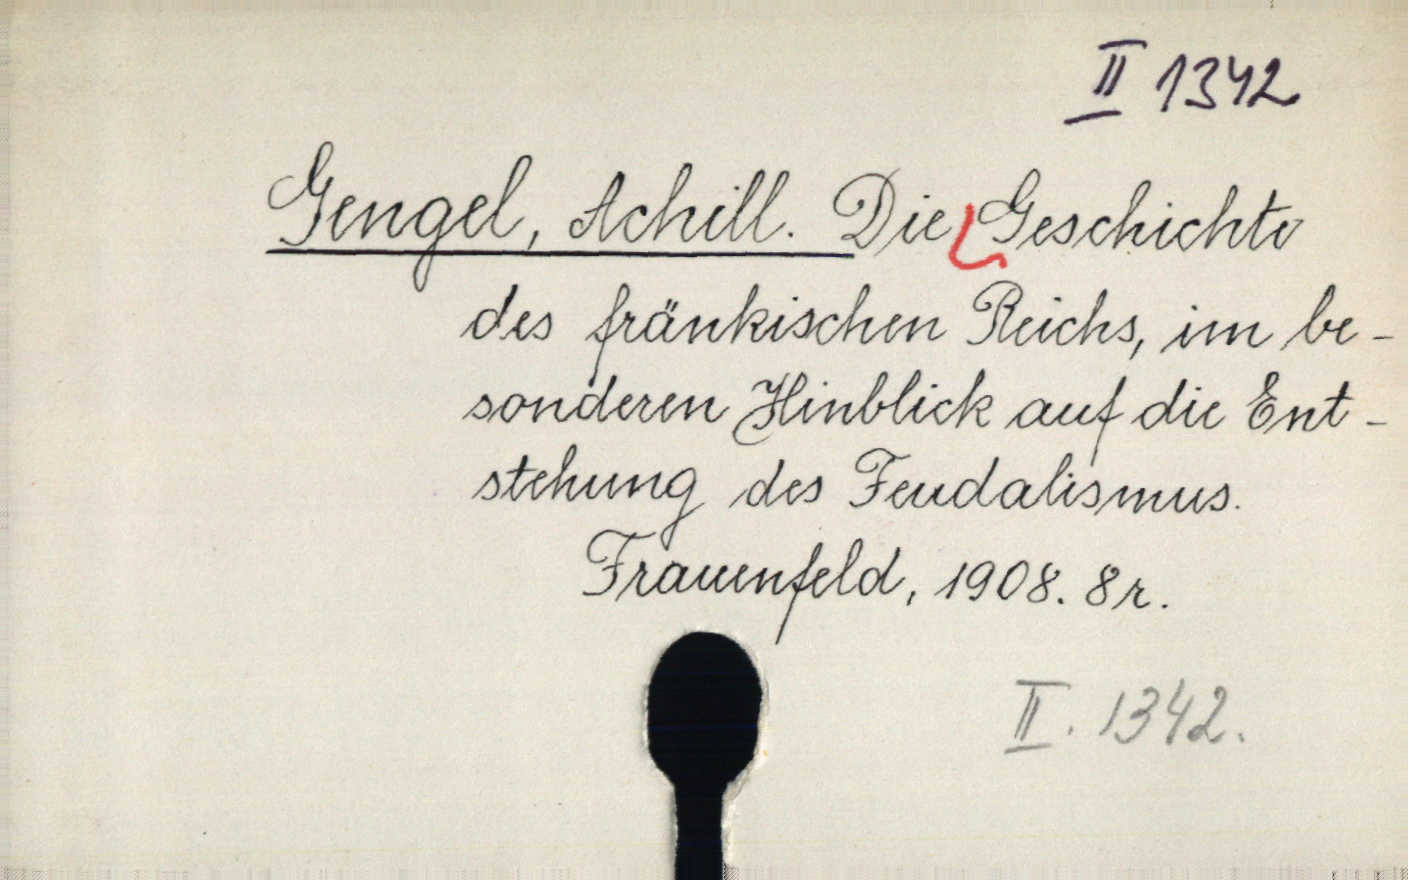 II 1342
Gengel, Achill. Die Geschichte
des fränkischen Reichs, im be-
sonderen Hinblick auf die Ent-
stehung des Feudalismus.
Frauenfeld, 1908. 8r.
II. 1342.